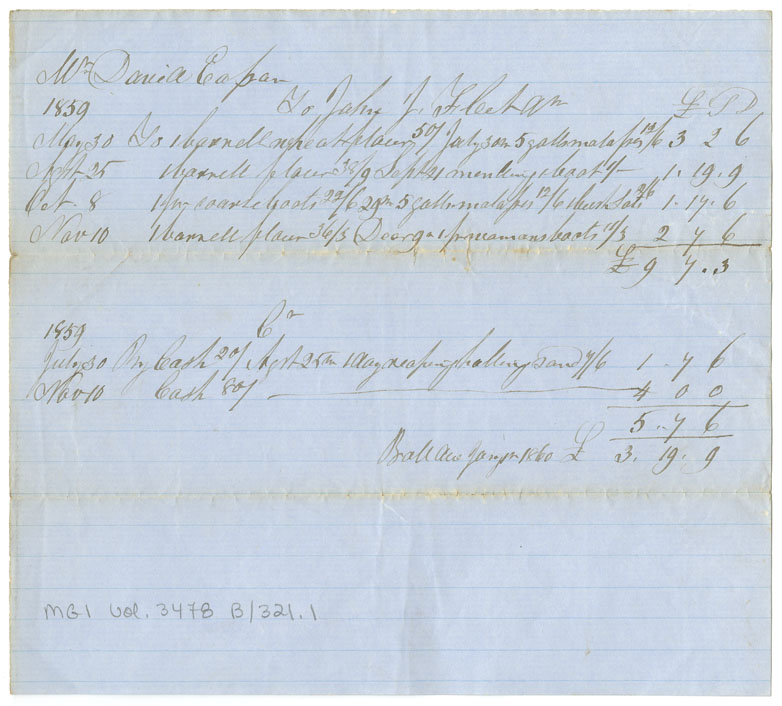 Mr David Eason
1859 To John J. Fleet Dr £ S D
May 30 To 1 barrell wheat flour 50/ July 30th 5 galls malases 12/6 3 2 6
Agst 25 1 barrell flour 38/9 Sept 21 mending 1 boot 1/- 1. 19. 9
Oct. 8 1 pr coarse boots 22/6 29th 5 galls malases 12/6 1 bush Salt 2/6 1. 17. 6
Nov 10 1 barrell flour 36/3 Decr 9th 1 pr womans boots 11/3 2 7 6
£ 9 7. 3
1859 Cr
July 30 By Cash 20/ Agst 25th 1 day reaping halling Sand 7/6 1. 7 6
Nov 10 Cash 80/ 4 0 0
5. 7 6
Ball due 1860 £ 3. 19. 9
MG1 Vol. 3478 B/321.1